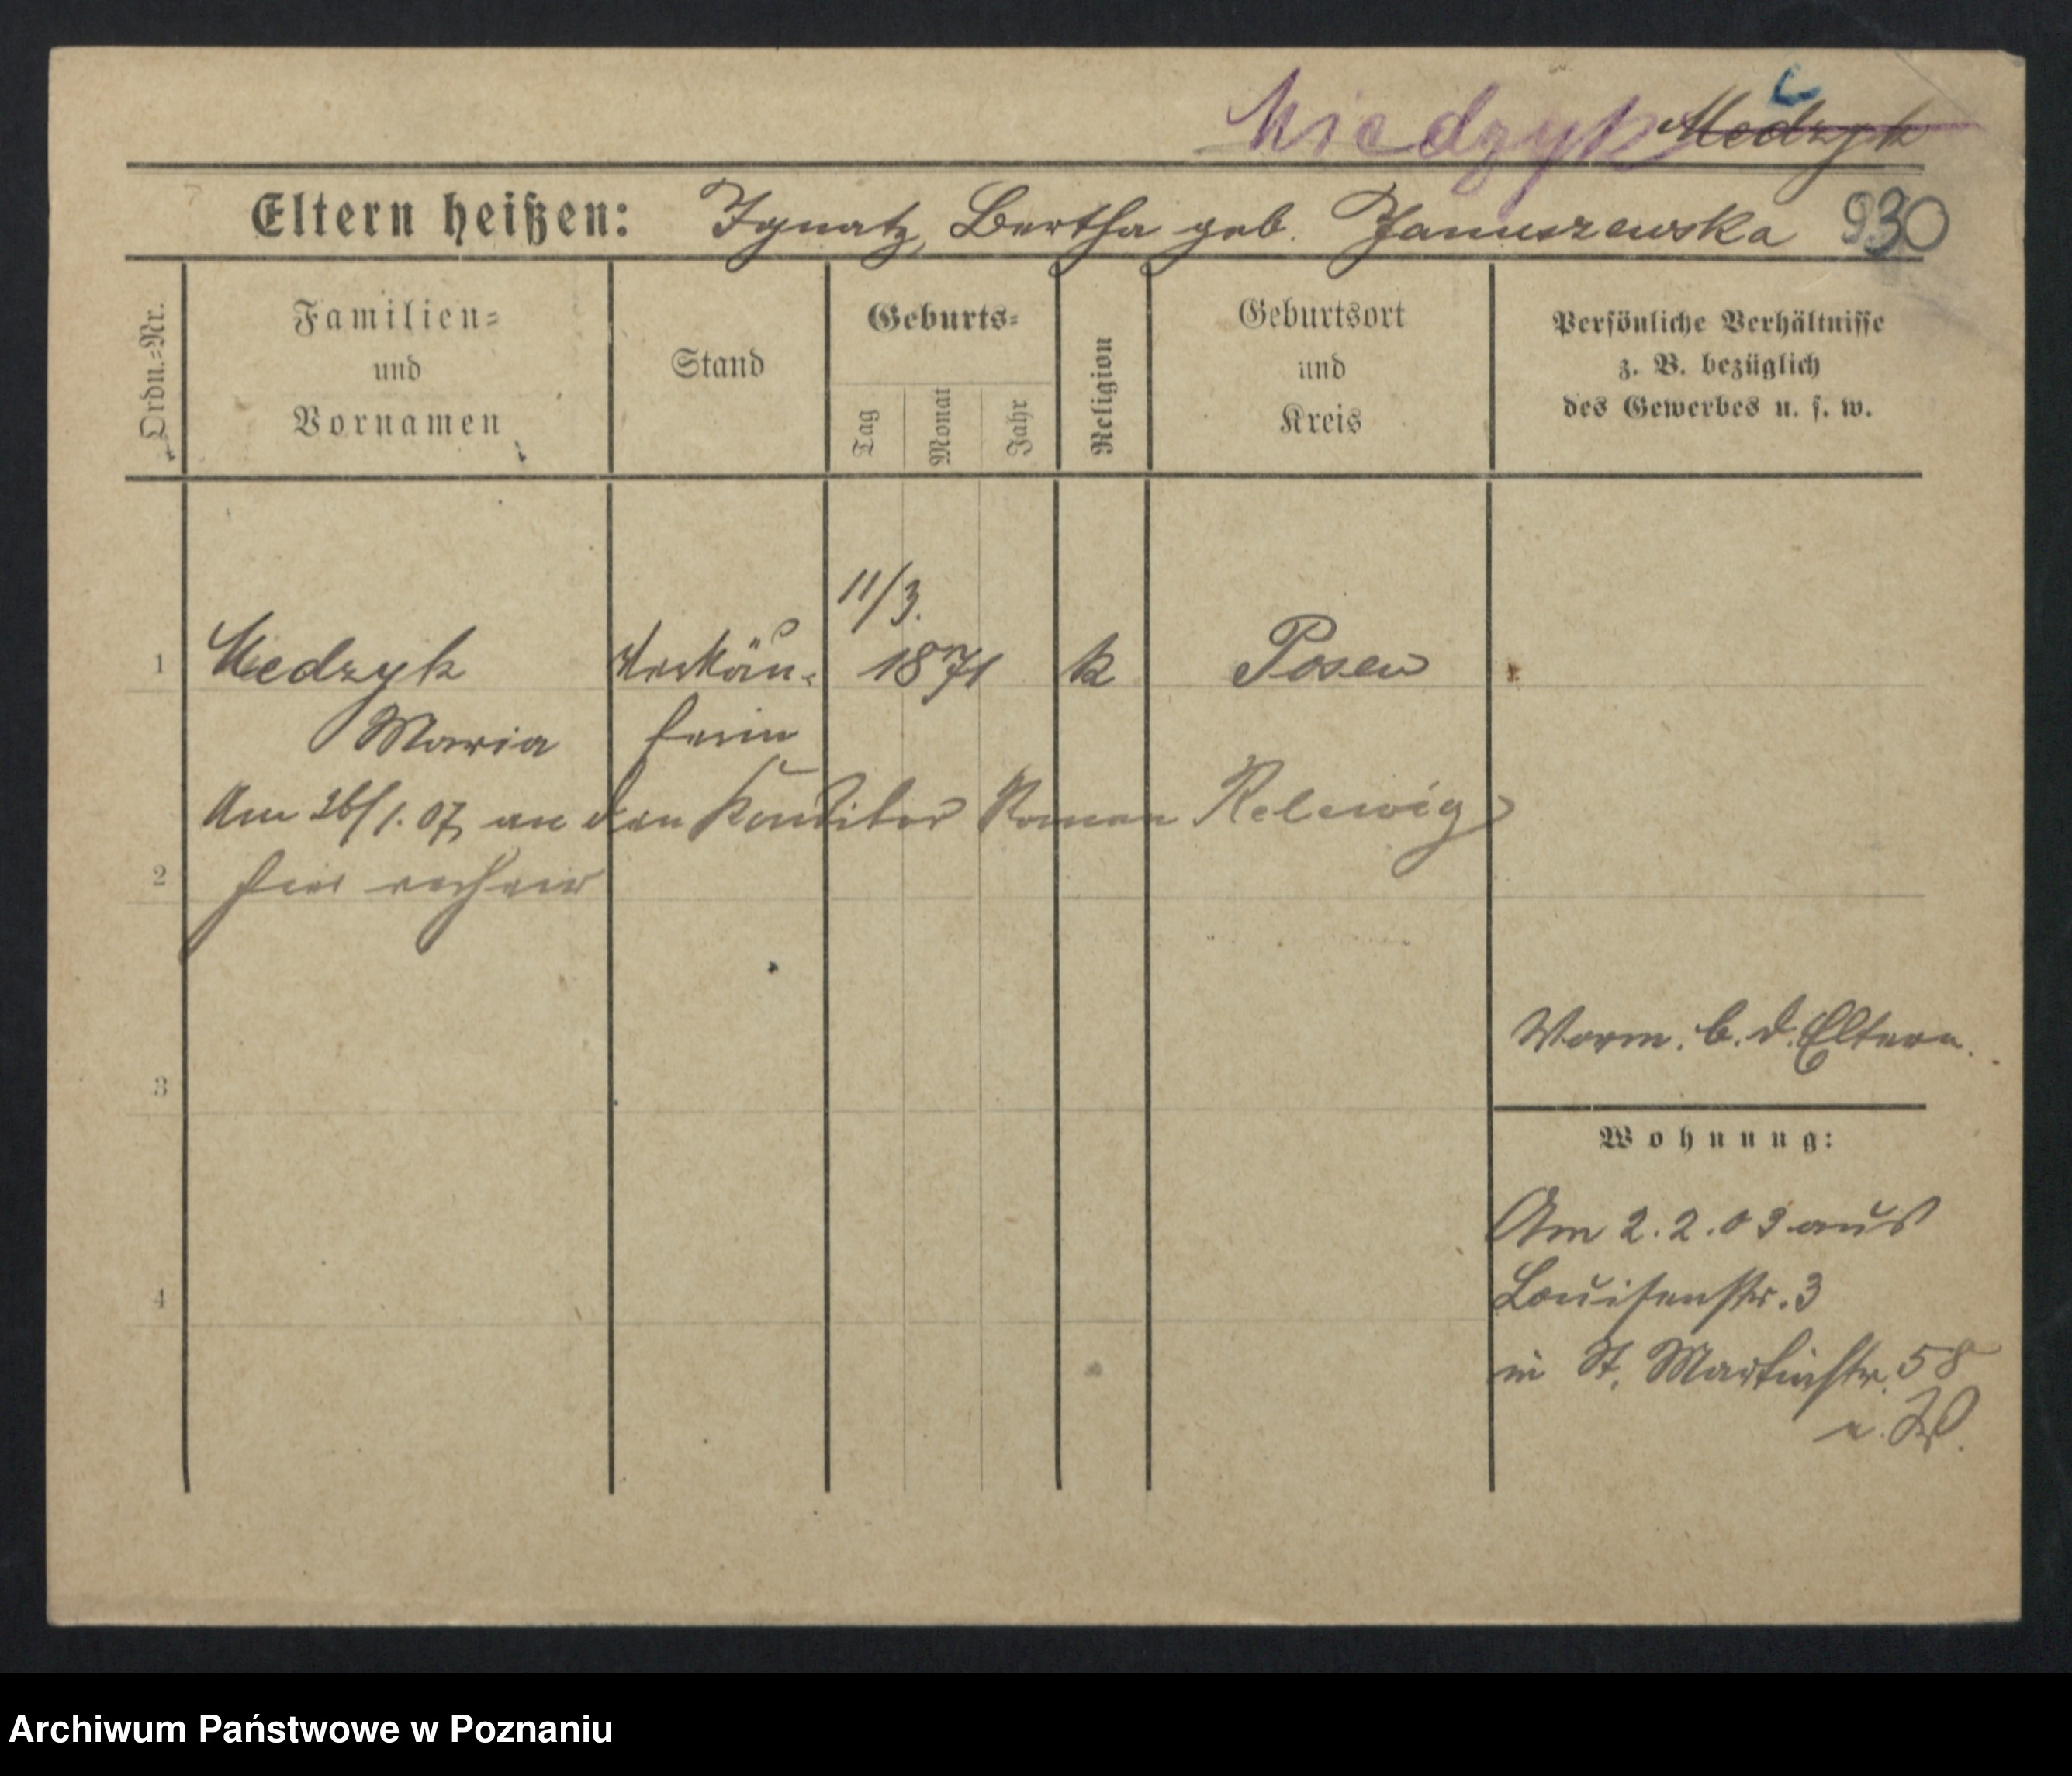 Miedzyk Medzyk
Eltern heißen: Ignatz, Bertha geb. Januszewska 930
Ordn.=Nr.
Familien=
und
Vornamen
Stand
Geburts=
Tag
Monat
Jahr
Religion
Geburtsort
und
Kreis
Persönliche Verhältnisse
z. B. bezüglich
des Gewerbes u. s. w.
11/3.
1 Medzyk Verkäu- 1871 k Posen
Maria ferin
Am 26/1. 07 an den Konditor Roman Relewicz
2 hier verheir
Vorm. b. d. Eltern.
3
Wohnung:
Am 2.2.03 aus
4 Louisenstr. 3
in St. Martinstr. 58